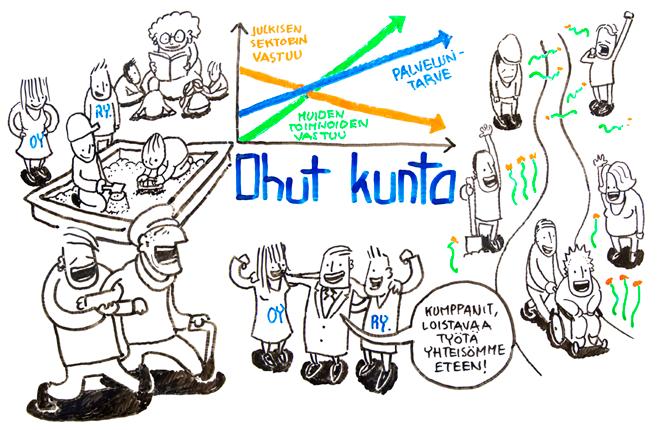 JULKISEN
SEKTORIN
VASTUU
PALVELUN-
TARVE
MUIDEN
TOIMIJOIDEN
VASTUU
OY
RY.
Ohut kunta
OY
RY.
KUMPPANIT,
LOISTAVAA
TYÖTÄ
YHTEISÖMME
ETEEN!